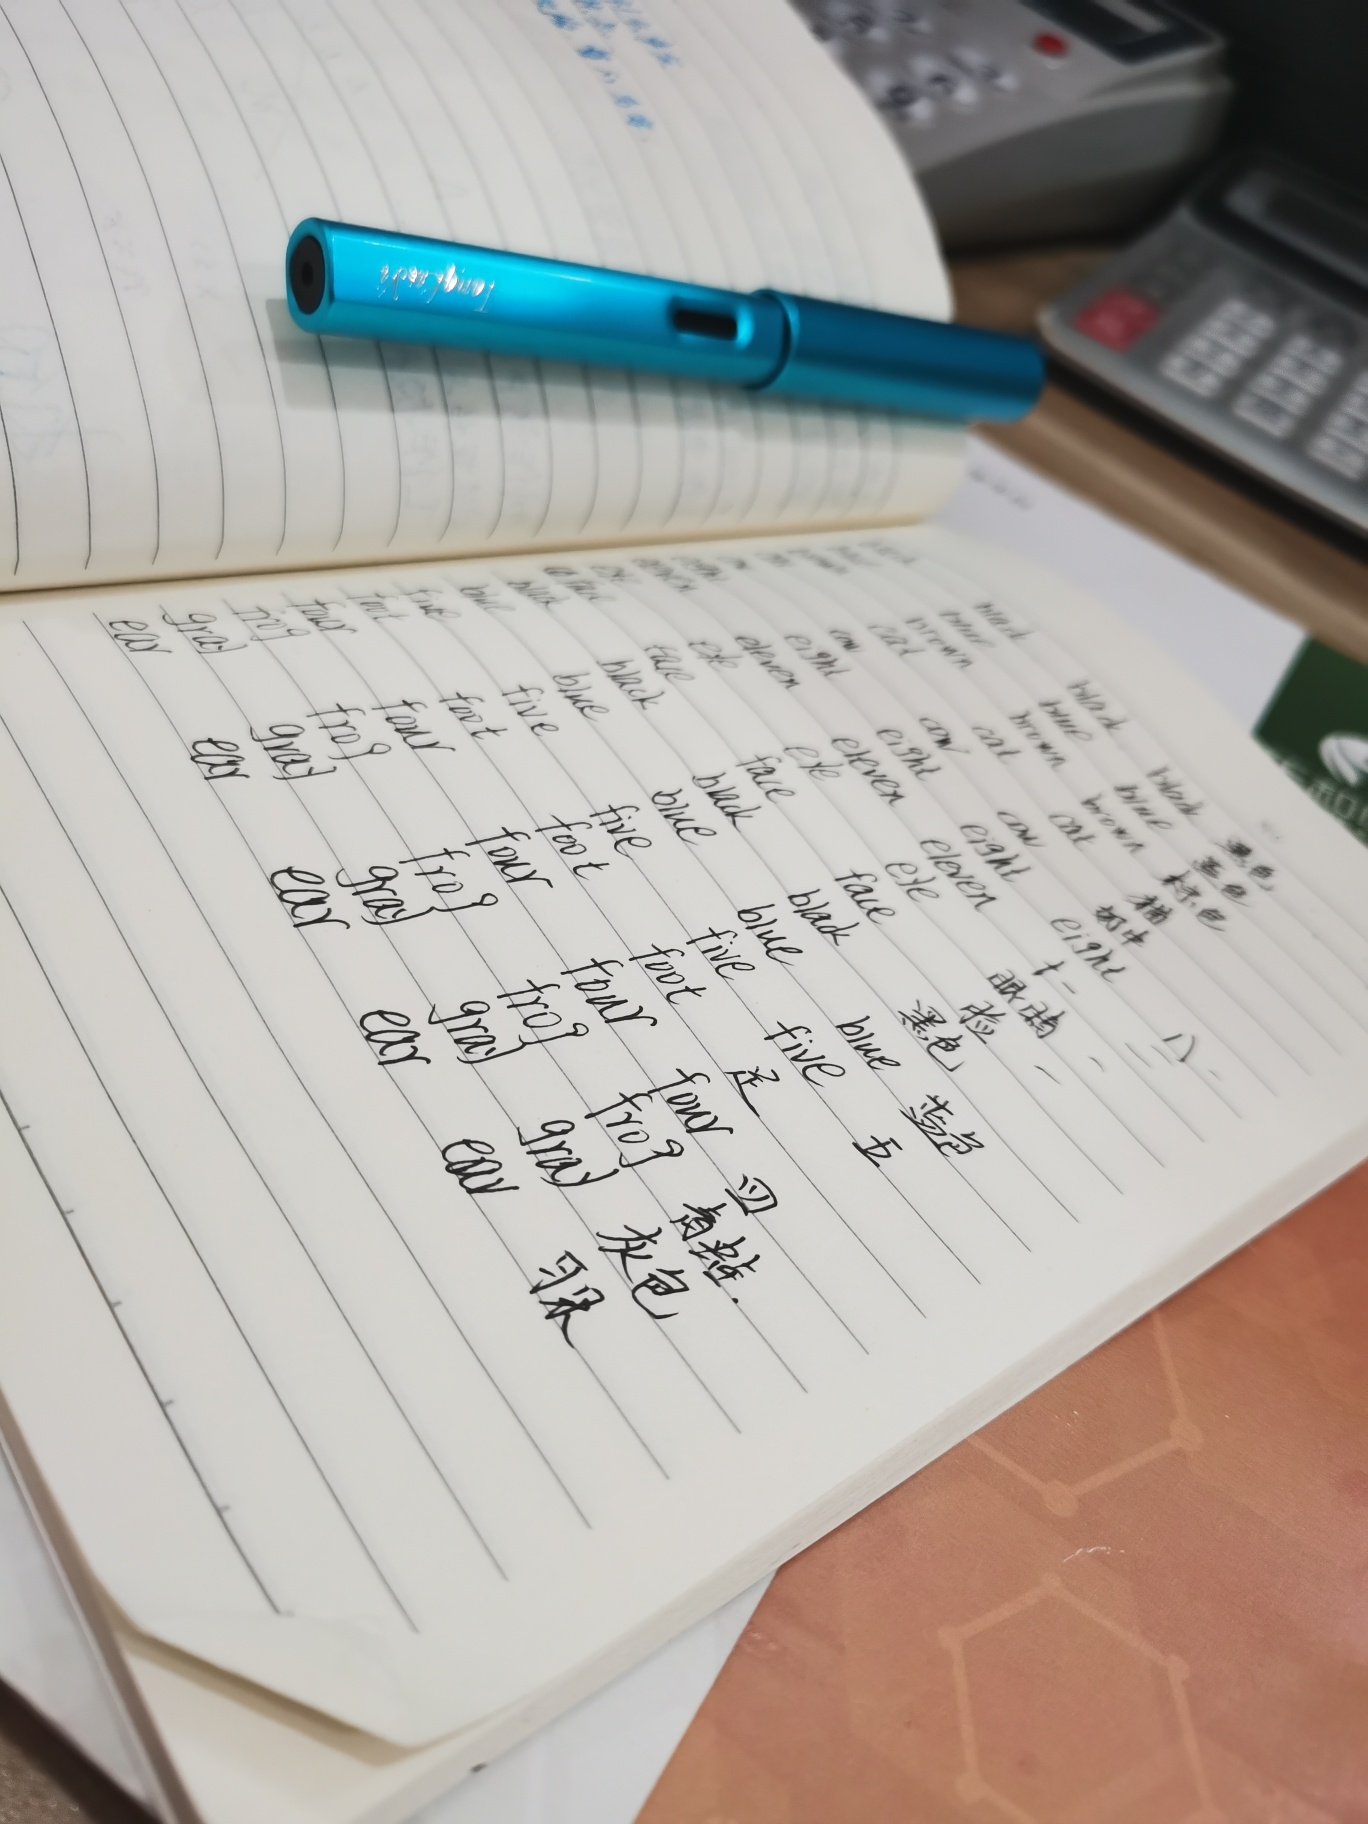 black black black 黑色
blue blue blue 蓝色
brown brown brown 棕色
cat cat cat 猫
cow cow cow 奶牛
eight eight eight eight 八
eleven eleven eleven eleven 十一
eye eye eye eye 眼睛
face face face face 脸
black black black black 黑色
blue blue blue blue blue 蓝色
five five five five five 五
foot foot foot foot 足
four four four four four 四
frog frog frog frog frog 青蛙.
gray gray gray gray gray 灰色
ear ear ear ear ear 耳朵